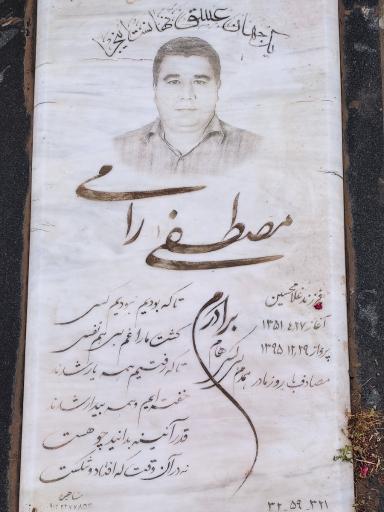 یک جهان عشق نهانست اینجا
مصطفی رامی
فرزند غلامحسین
آغاز ۱۳۵۱/۴/۲۷
پرواز ۱۳۹۵/۱۲/۲۹
مصادف با روز مادر
برادرم
همدم بی کسی هام
تا که بودیم نبودیم کسی
کشت ما را غم بی هم نفسی
تا که رفتیم همه یار شدند
خفته ایم و همه بیدار شدند
قدر آئینه بدانید چو هست
نه در آن وقت که افتاد و شکست
۳۲_۵۹_۳۲۱